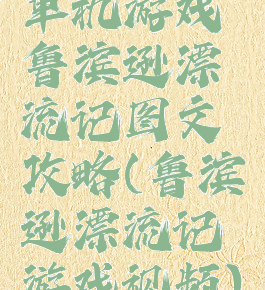 单机游戏
鲁滨逊漂
流记图文
攻略(鲁滨
逊漂流记
游戏视频)